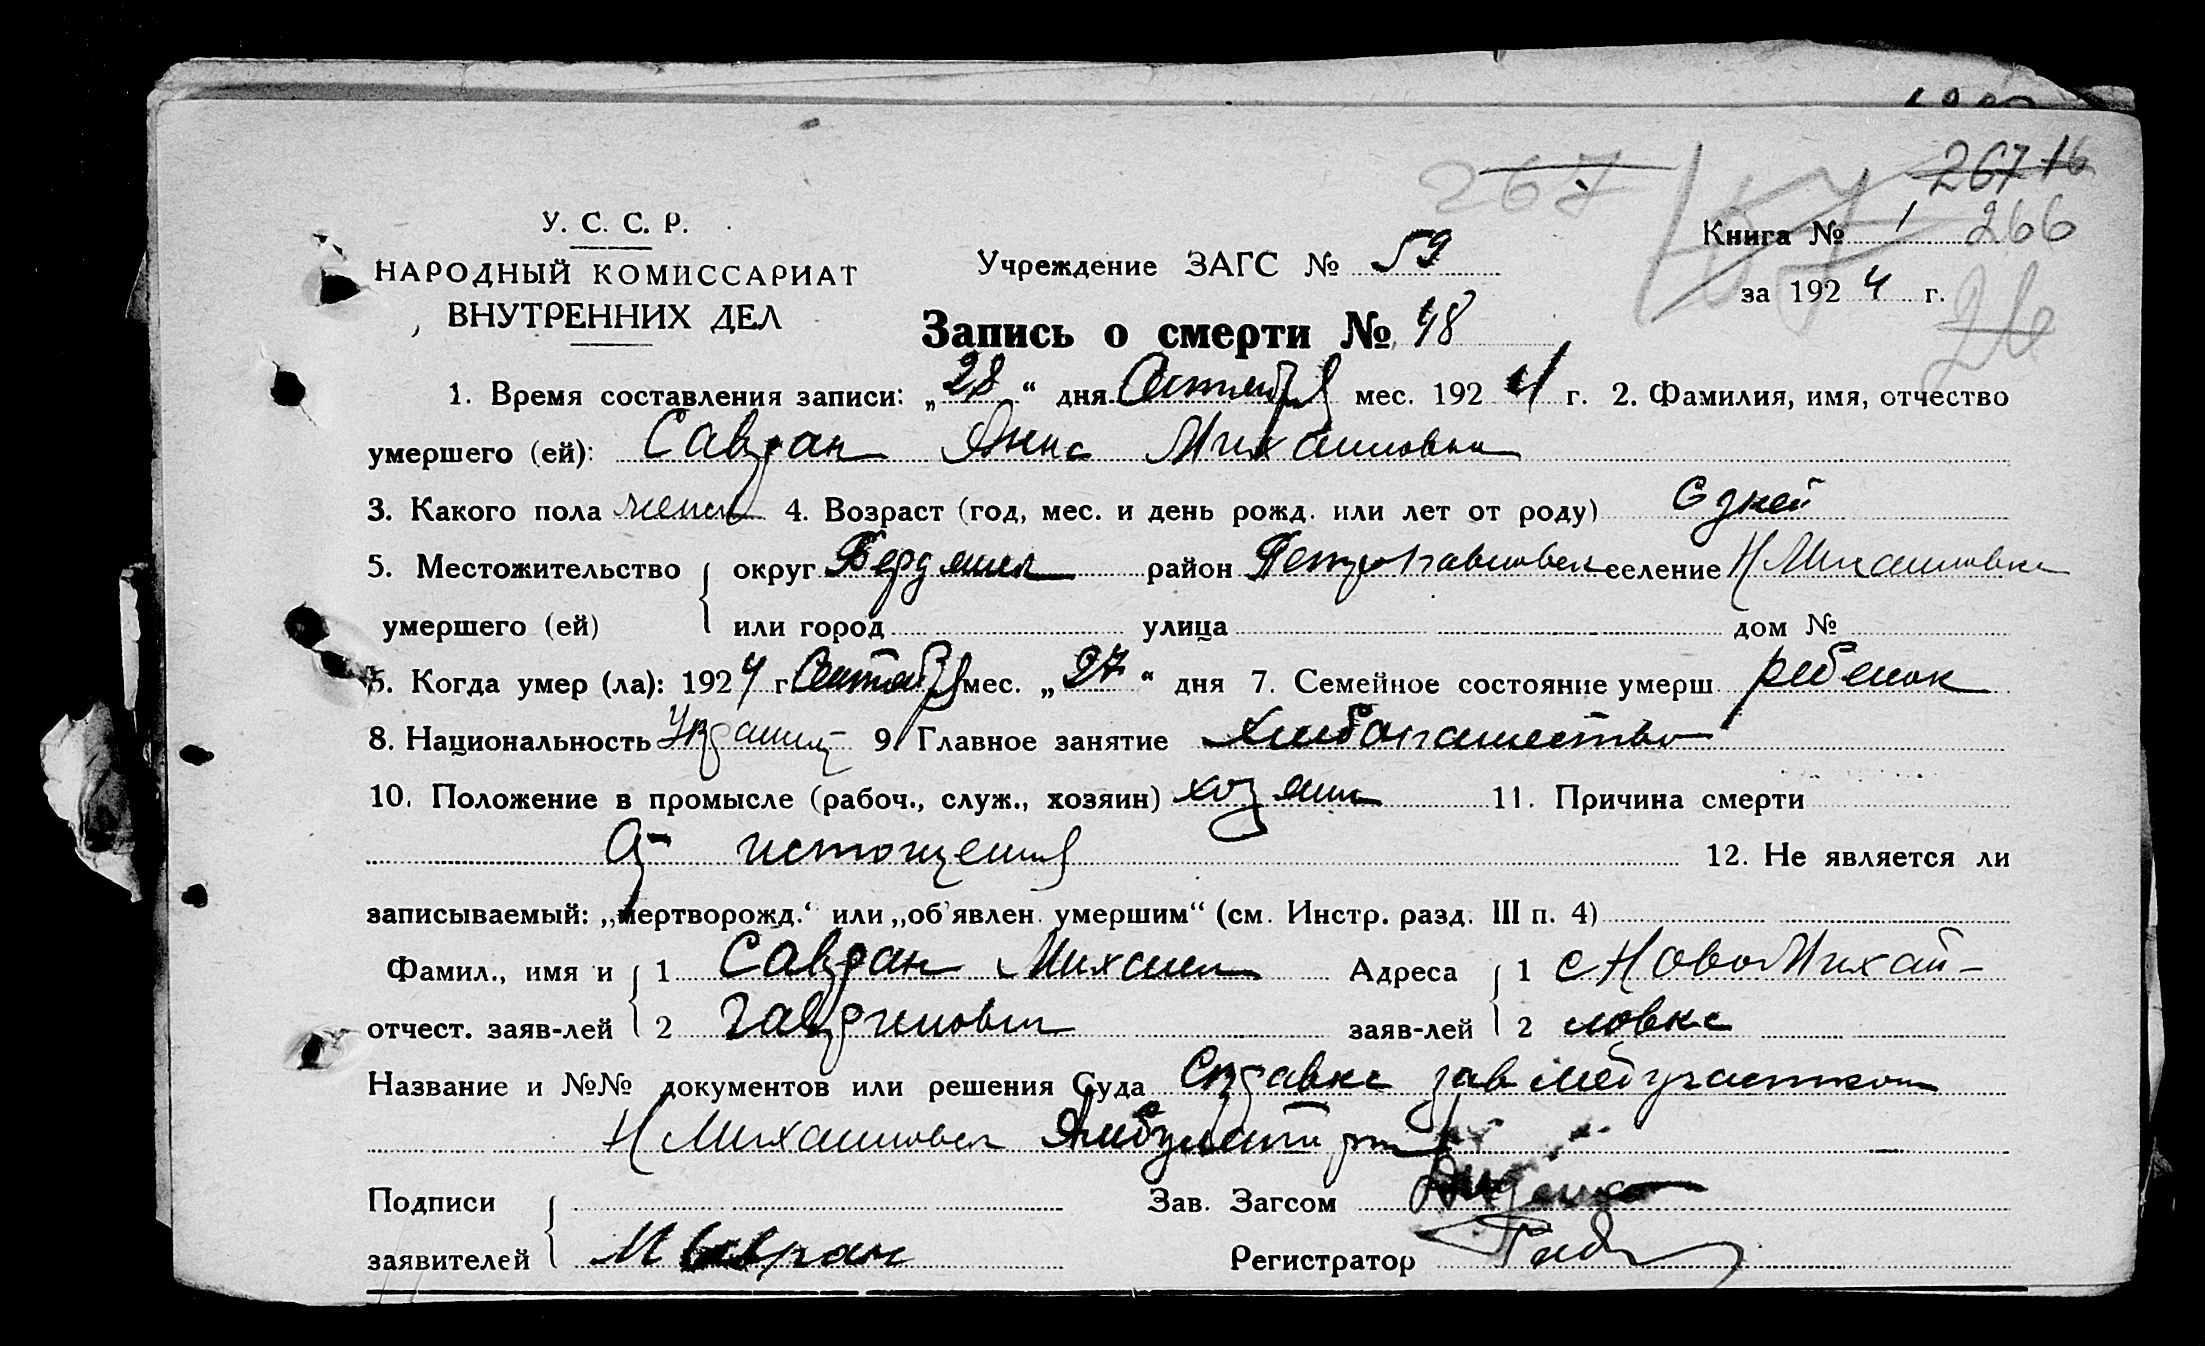 267
267 16
У. С. С. Р.
НАРОДНЫЙ КОМИССАРИАТ
ВНУТРЕННИХ ДЕЛ
Учреждение ЗАГС № 59
Книга № 1 266
за 1924 г.
26
Запись о смерти № 48
1. Время составления записи: „28“ дня Сентября мес. 1924 г. 2. Фамилия, имя, отчество
умершего (ей): Савран Анна Михайловна
3. Какого пола женск 4. Возраст (год, мес. и день рожд. или лет от роду) 6 дней
5. Местожительство округ Бердянск район Петропавловск селение Н Михайловка
умершего (ей) или город улица дом №
6. Когда умер (ла): 1924 г. Сентября мес. „27“ дня 7. Семейное состояние умерш. ребенок
8. Национальность Украинц 9. Главное занятие хлебопашество
10. Положение в промысле (рабоч., служ., хозяин) хозяин 11. Причина смерти
От истощения 12. Не является ли
записываемый: „мертворожд.“ или „об'явлен. умершим“ (см. Инстр. разд. III п. 4)
Фамил., имя и 1 Савран Михаил Адреса 1 с Ново Михай-
отчест. заяв-лей 2 Гаврилович заяв-лей 2 ловка
Название и №№ документов или решения Суда Справка зав медучастком
Н Михайловск Амбулатории
Подписи Зав. Загсом
заявителей М Савран Регистратор